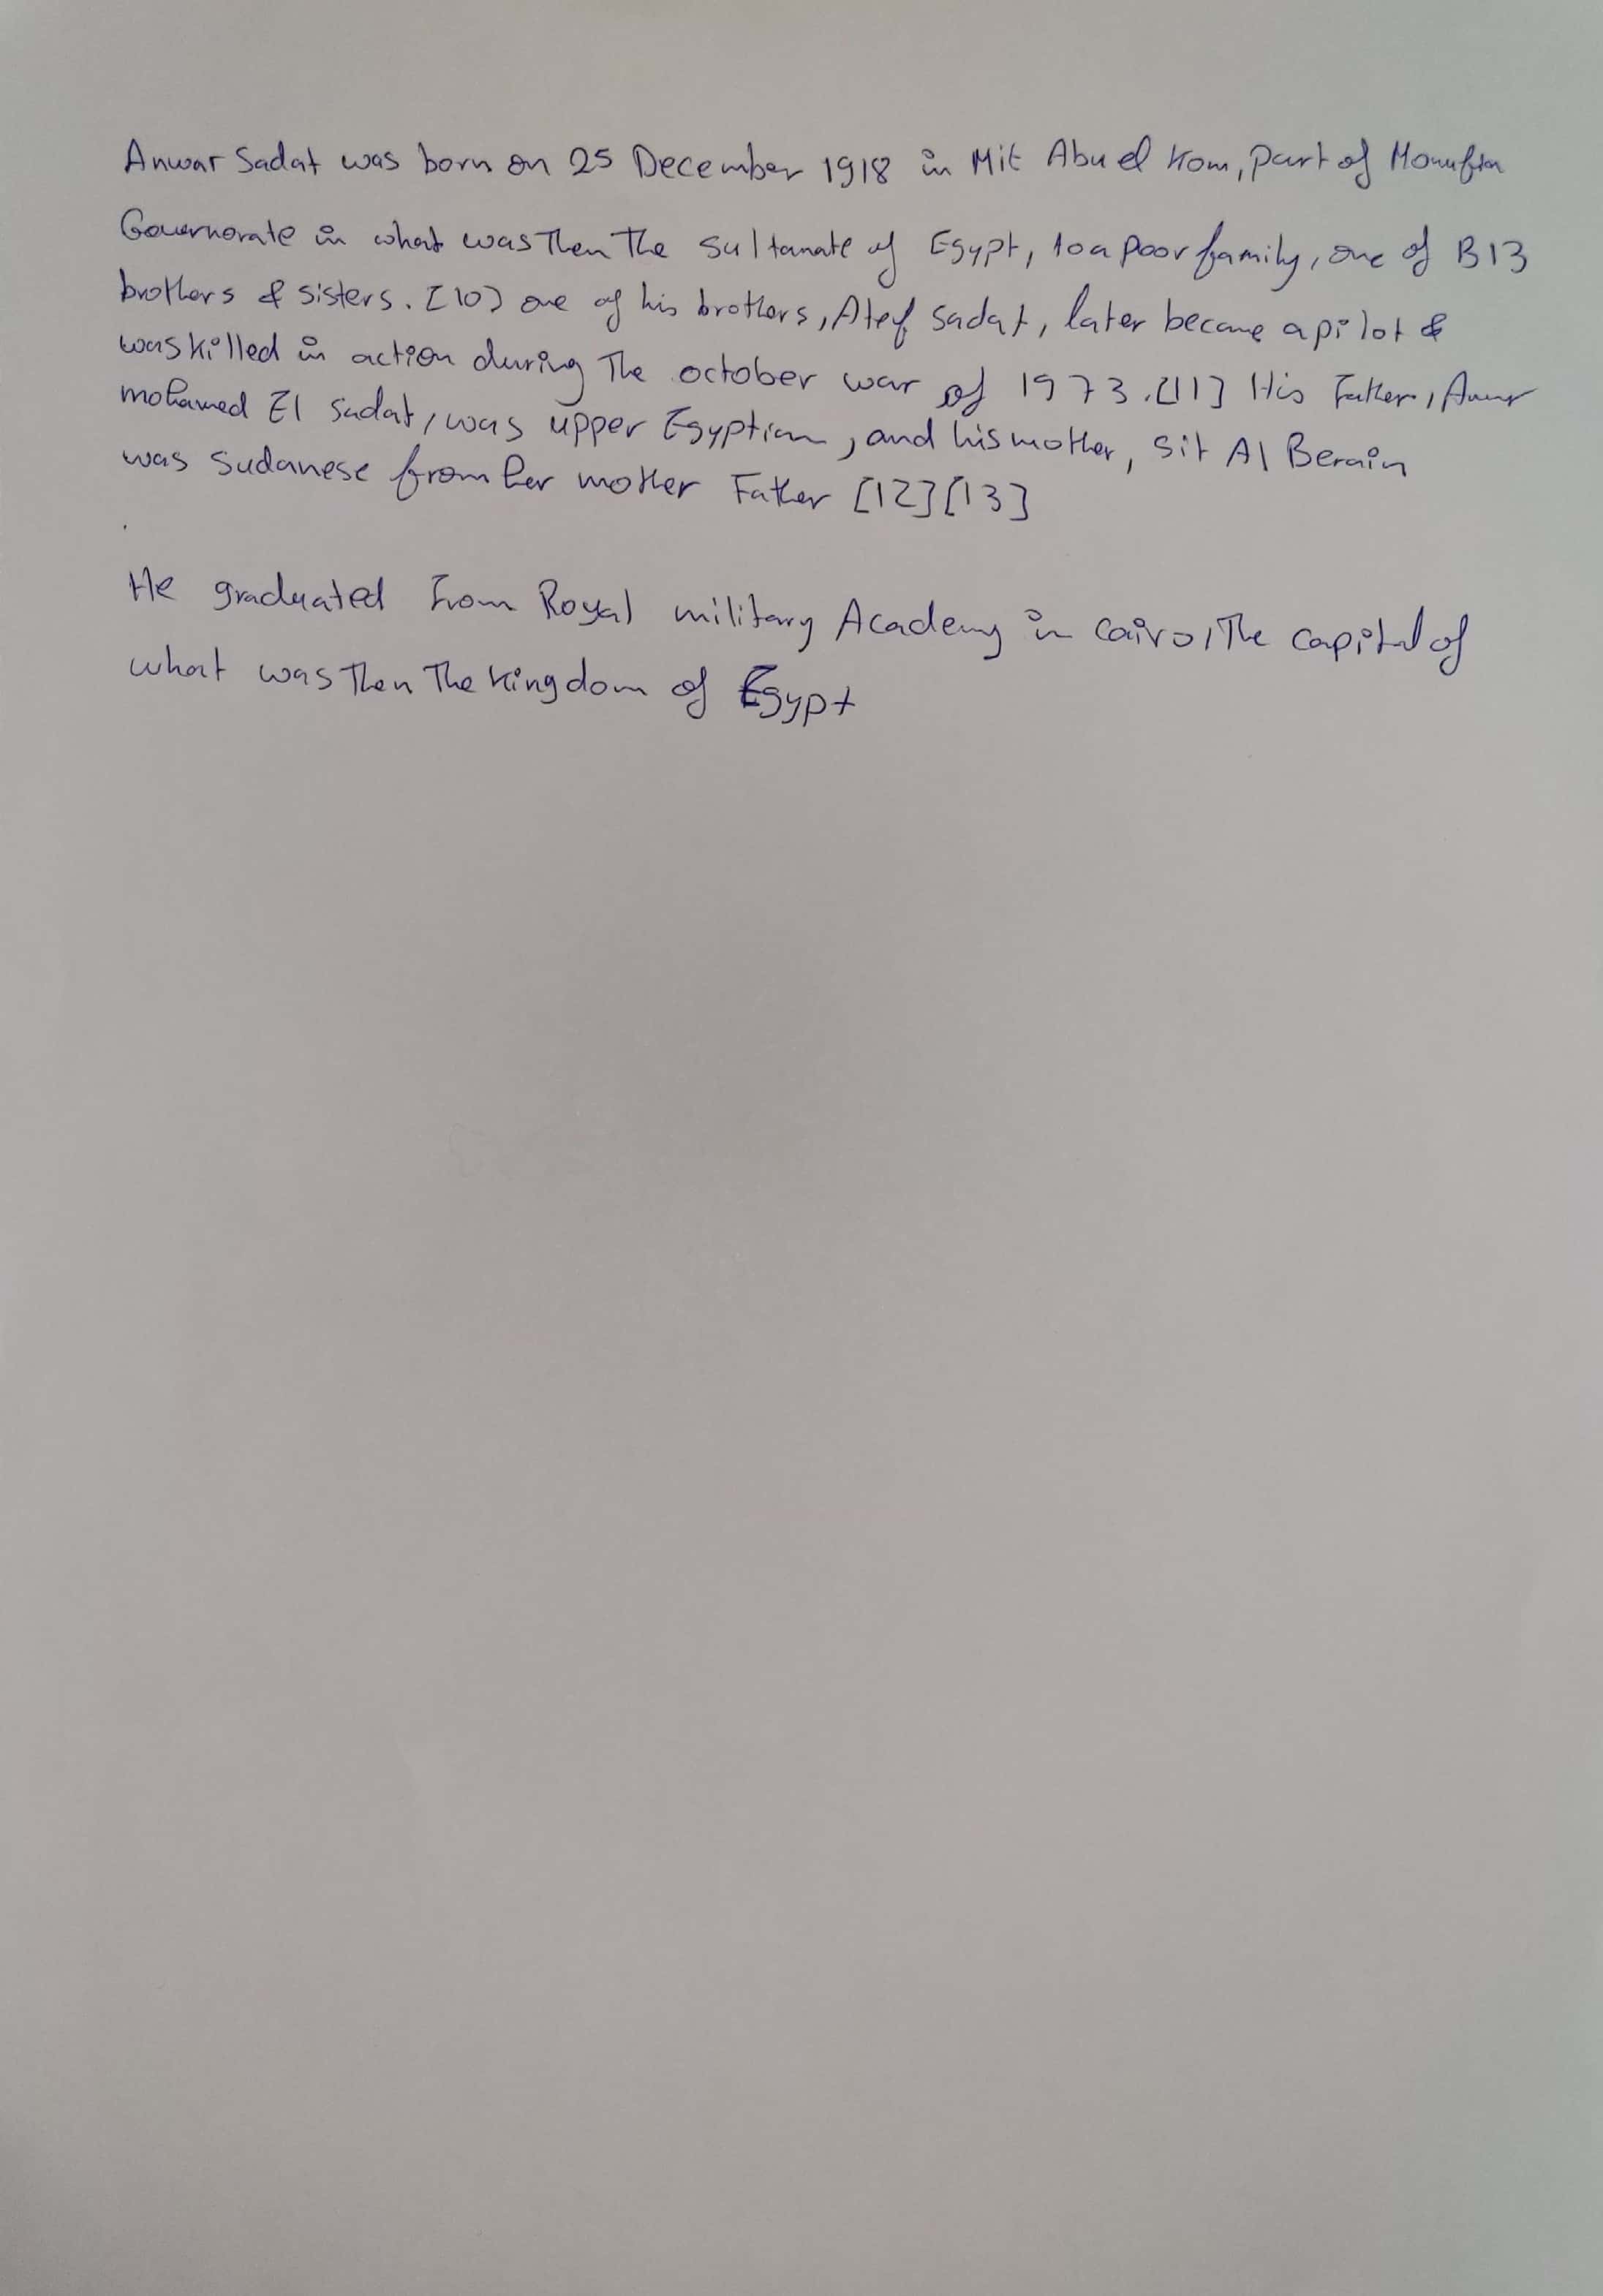 Anwar Sadat was born on 25 December 1918 in Mit Abu el Kom, part of Monufia
Governorate in what was Then The sultanate of Egypt, to a poor family, one of B 13
brothers & sisters. [10] one of his brothers, Atef sadat, later became a pilot &
was killed in action during The october war of 1973. [11] His Father, Anwar
mohamed El sadat, was upper Egyptian, and his mother, sit Al Berain
was sudanese from her mother Father [12][13]
He graduated From Royal military Academy in cairo, The capital of
what was Then The kingdom of Egypt